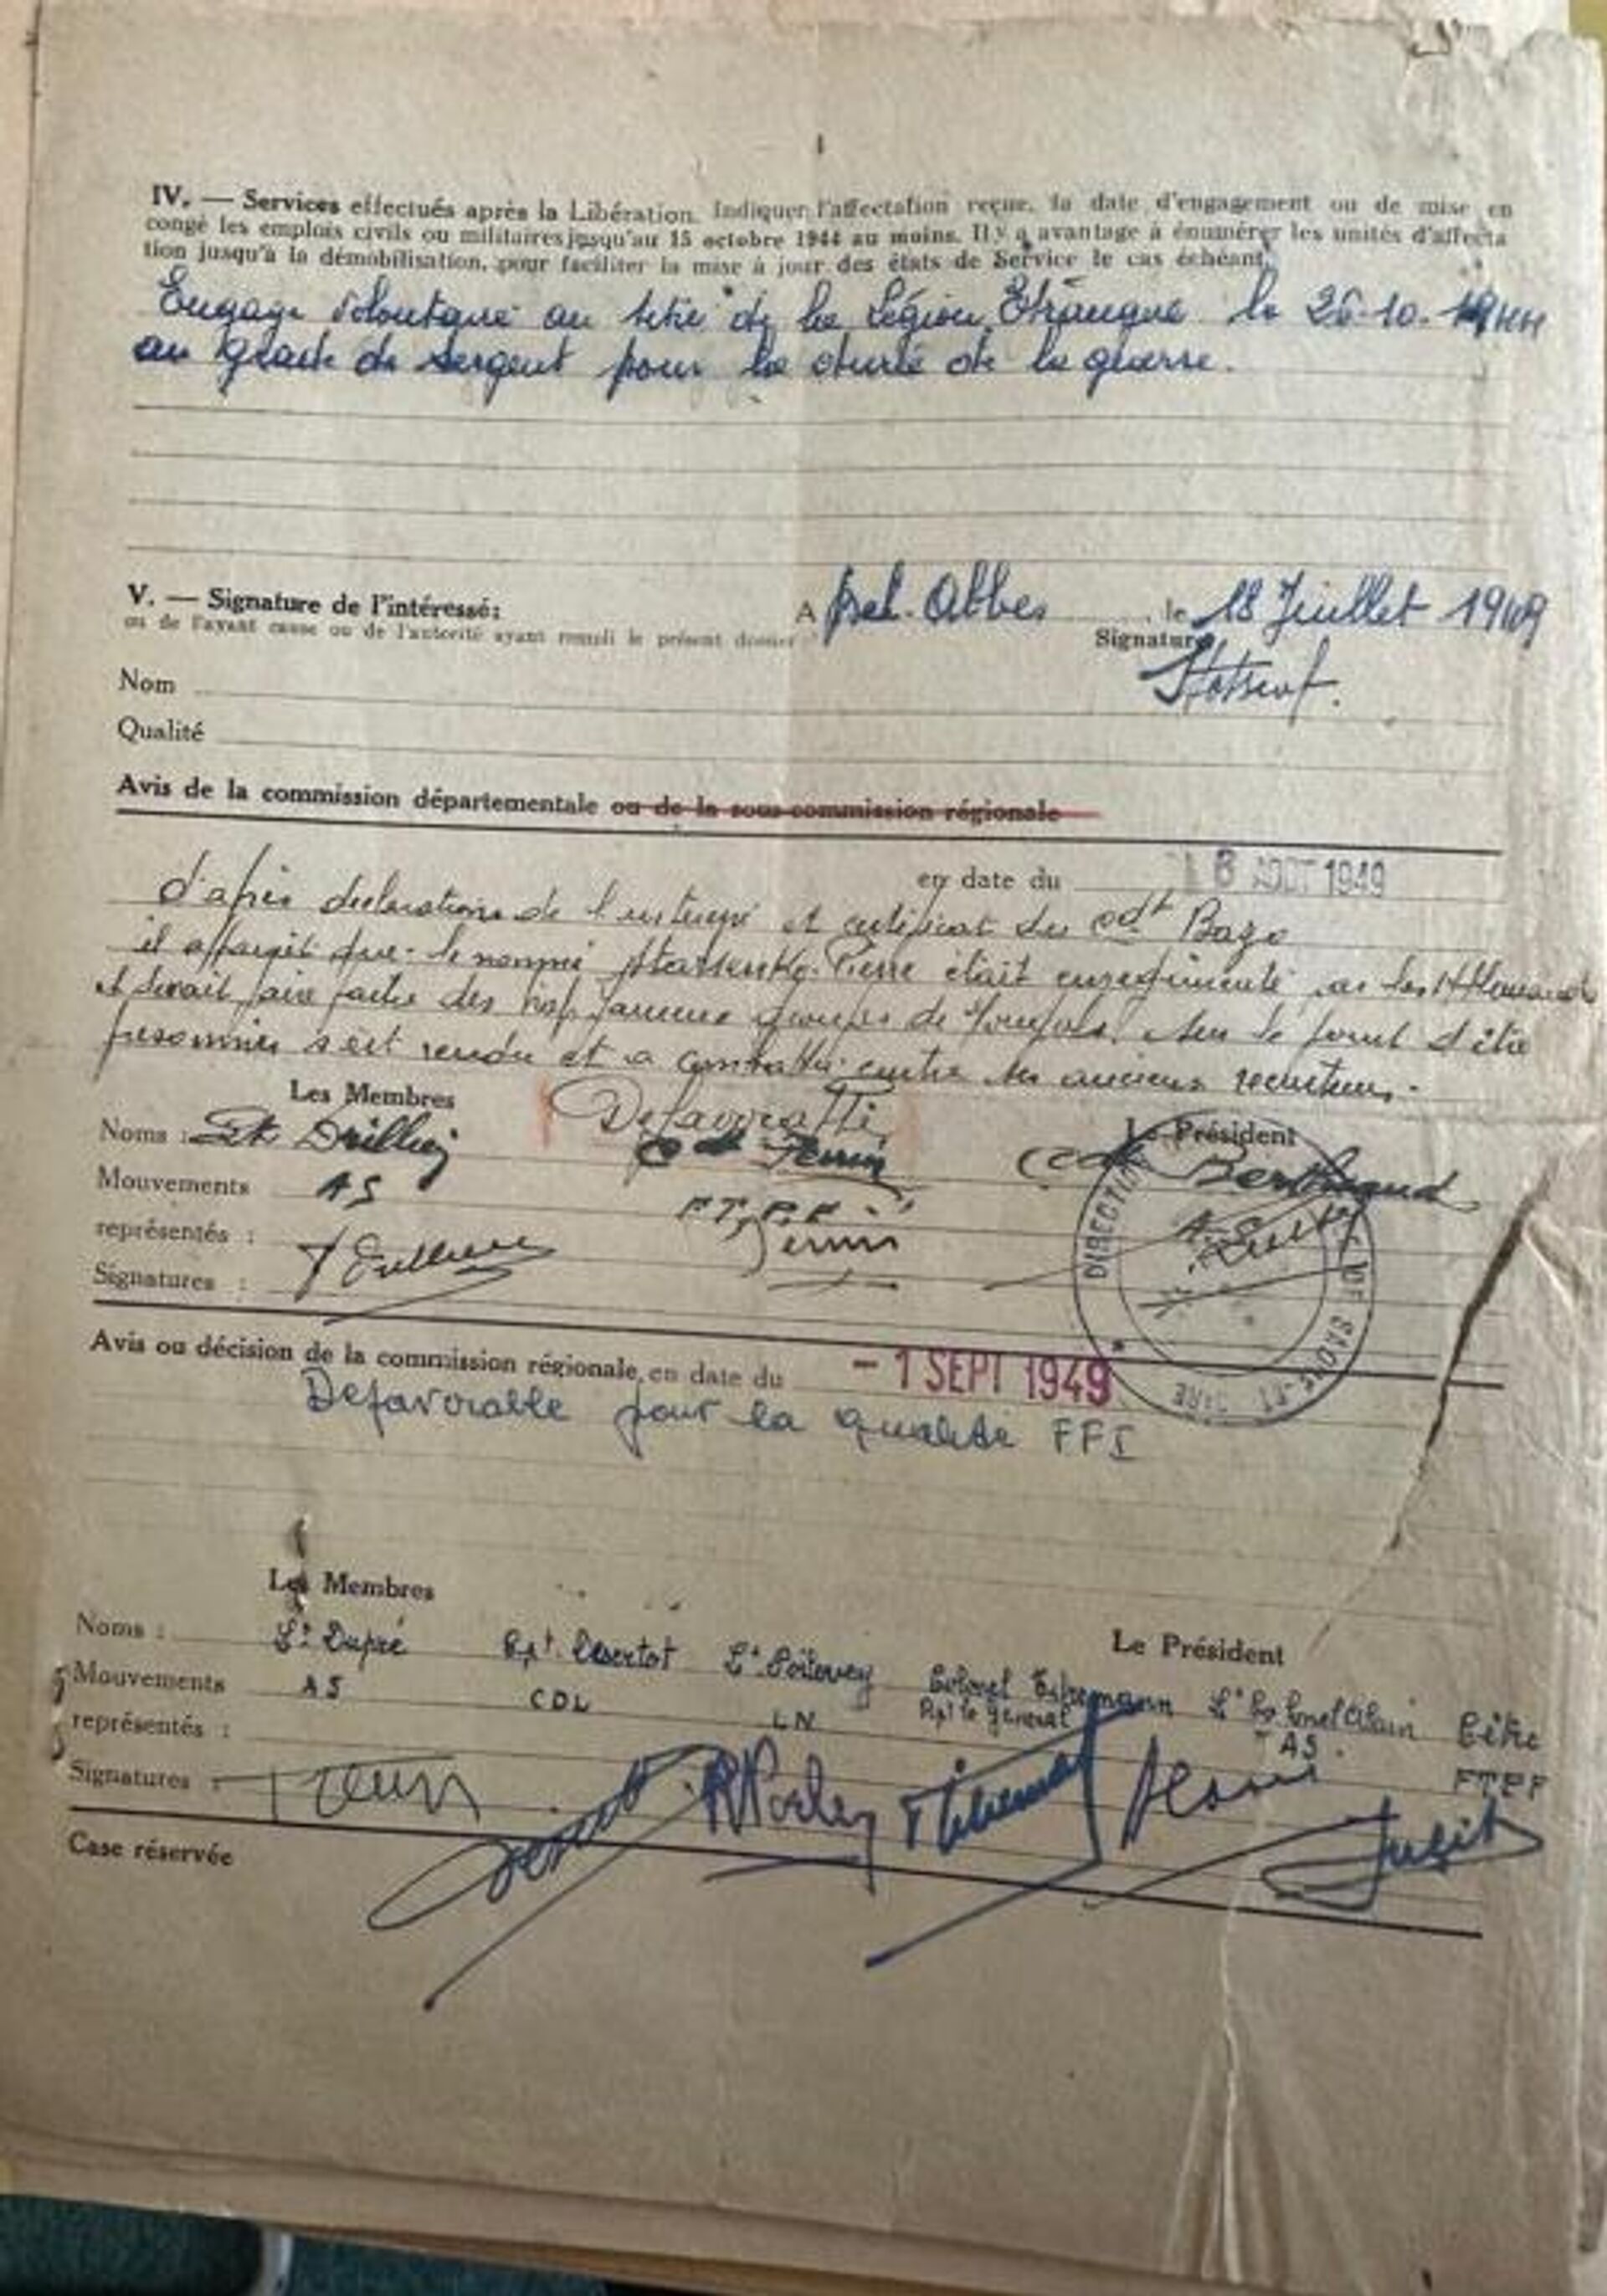 IV. — Services effectués après la Libération. Indiquer l'affectation reçue, la date d'engagement ou de mise en
congé les emplois civils ou militaires jusqu'au 15 octobre 1944 au moins. Il y a avantage à énumérer les unités d'affecta
tion jusqu'à la démobilisation, pour faciliter la mise à jour des états de Service le cas échéant.
Engagé volontaire au titre de la Légion Etrangère le 26-10-1944
au grade de sergent pour la durée de la guerre.
V. — Signature de l'intéressé: A Bel-Abbes, le 18 Juillet 1949
ou de l'ayant cause ou de l'autorité ayant rempli le présent dossier
Signature
Nom
Qualité
Avis de la commission départementale ou de la sous-commission régionale
en date du 8 AOUT 1949
d'après déclarations de l'intéressé et certificat du cdt Bazo
il apparait que le nommé Pierre était enrégimenté par les Allemands
et devait faire partie des groupes de Mongols. Sur le point d'être
prisonnier s'est rendu et a combattu contre ses anciens recruteurs.
Défavorable
Les Membres
Le Président
Noms : Cdt Perrin Cdt Berthaud
Mouvements AS F.T.P.F A.S.
représentés :
Signatures :
DIRECTION
DE SAONE-ET-LOIRE
Avis ou décision de la commission régionale, en date du - 1 SEPT 1949
Défavorable pour la qualité FFI
Les Membres
Le Président
Noms : Lt Dupré Cpt Desertot Lt Colonel Lt Colonel Alain
Mouvements AS CDL LN Rpt le général AS FTPF
représentés :
Signatures :
Case réservée